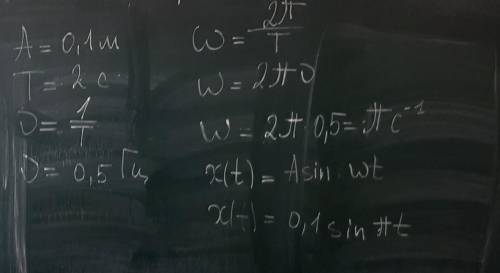 A = 0,1 м
T = 2 с
υ = 1/T
υ = 0,5 Гц
ω = 2π/T
ω = 2πυ
ω = 2π 0,5 = π c⁻¹
x(t) = A sin ωt
x(t) = 0,1 sin πt